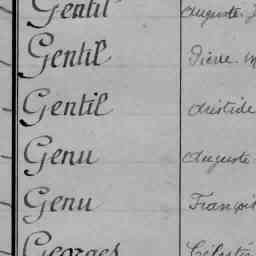 Gentil Auguste
Gentil Pierre
Gentil Aristide
Genu Auguste
Genu François
Georges Célestin